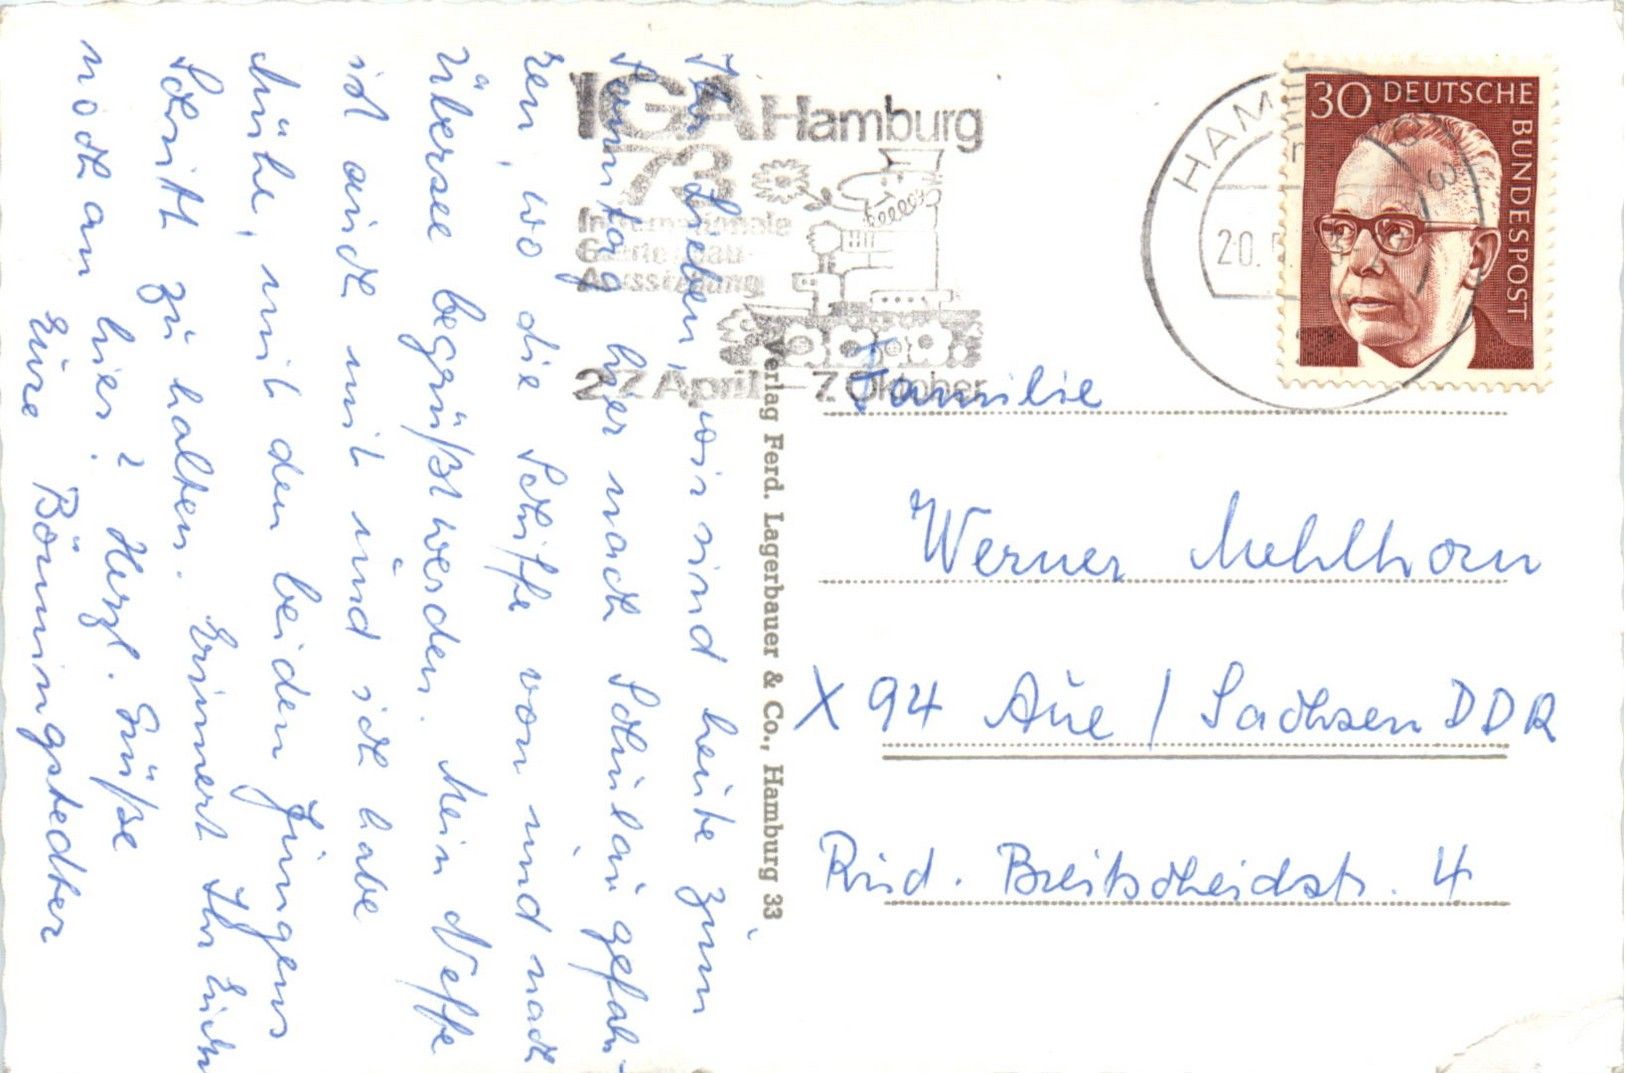 Ihr Lieben, wir sind heute zum
Sonntag hier nach Schulau gefah-
ren, wo die Schiffe von und nach
Übersee begrüßt werden. Mein Neffe
ist auch mit und ich habe
Mühe, mit den beiden Jungens
Schritt zu halten. Erinnert Ihr Euch
noch an hier? Herzl. Grüße
Eure Bönningstedter
IGA Hamburg
73
Internationale
Gartenbau-
Ausstellung
27. April - 7. Oktober
HAM
20.
30 DEUTSCHE
BUNDESPOST
Verlag Ferd. Lagerbauer & Co., Hamburg 33
Familie
Werner Mehlhorn
X 94 Aue / Sachsen DDR
Rud. Breitscheidstr. 4